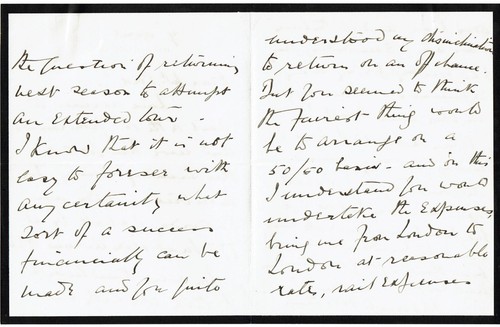 the question of returning
next season to attempt
an extended tour -
I know that it is not
easy to foresee with
any certainty what
sort of a success
financially can be
made and you quite
understood my disinclination
to return on an off chance.
But you seemed to think
the fairest thing would
be to arrange on a
50/50 basis - and in this
I understand you would
undertake the expenses,
bring me from London to
London at reasonable
rates, rail expenses